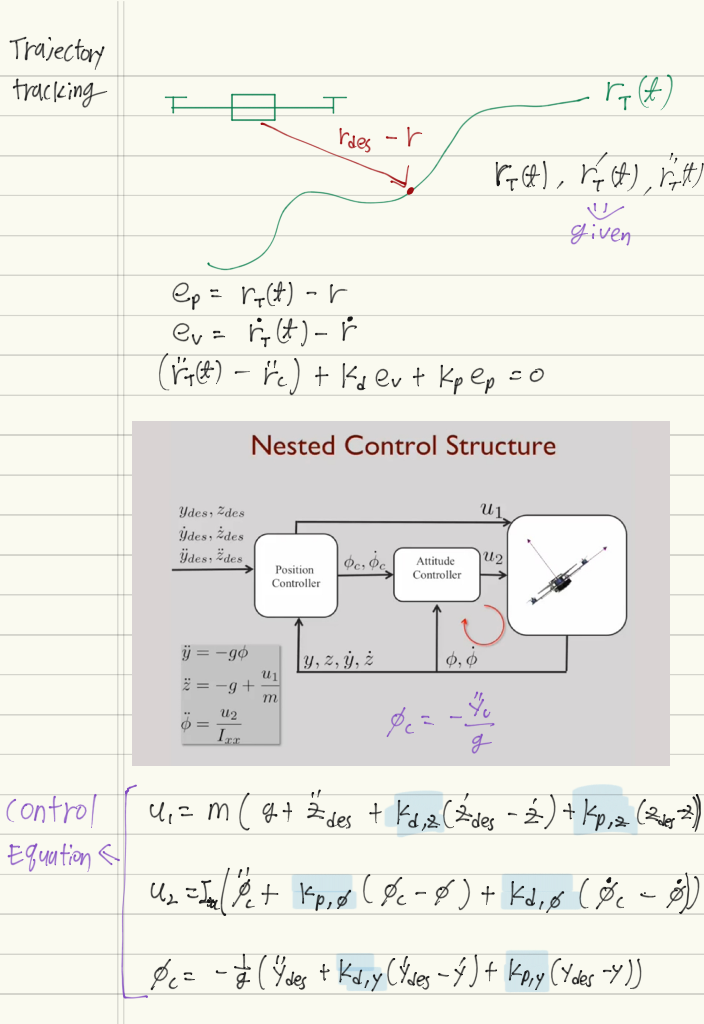 Trajectory
tracking
r_T(t)
r_des - r
r_T(t), ṙ_T(t), r̈_T(t)
given
e_p = r_T(t) - r
e_v = ṙ_T(t) - ṙ
(r̈_T(t) - r̈_c) + k_d e_v + k_p e_p = 0
Nested Control Structure
y_des, z_des
ẏ_des, ż_des
ÿ_des, z̈_des
Position
Controller
ϕ_c, ϕ̇_c
Attitude
Controller
u_1
u_2
ÿ = -gϕ
z̈ = -g + u_1/m
ϕ̈ = u_2/I_xx
y, z, ẏ, ż
ϕ, ϕ̇
ϕ_c = -ÿ_c/g
Control
Equation
u_1 = m(g + z̈_des + k_d,z(ż_des - ż) + k_p,z(z_des - z))
u_2 = I_xx(ϕ̈_c + k_p,ϕ(ϕ_c - ϕ) + k_d,ϕ(ϕ̇_c - ϕ̇))
ϕ_c = -1/g(ÿ_des + k_d,y(ẏ_des - ẏ) + k_p,y(y_des - y))